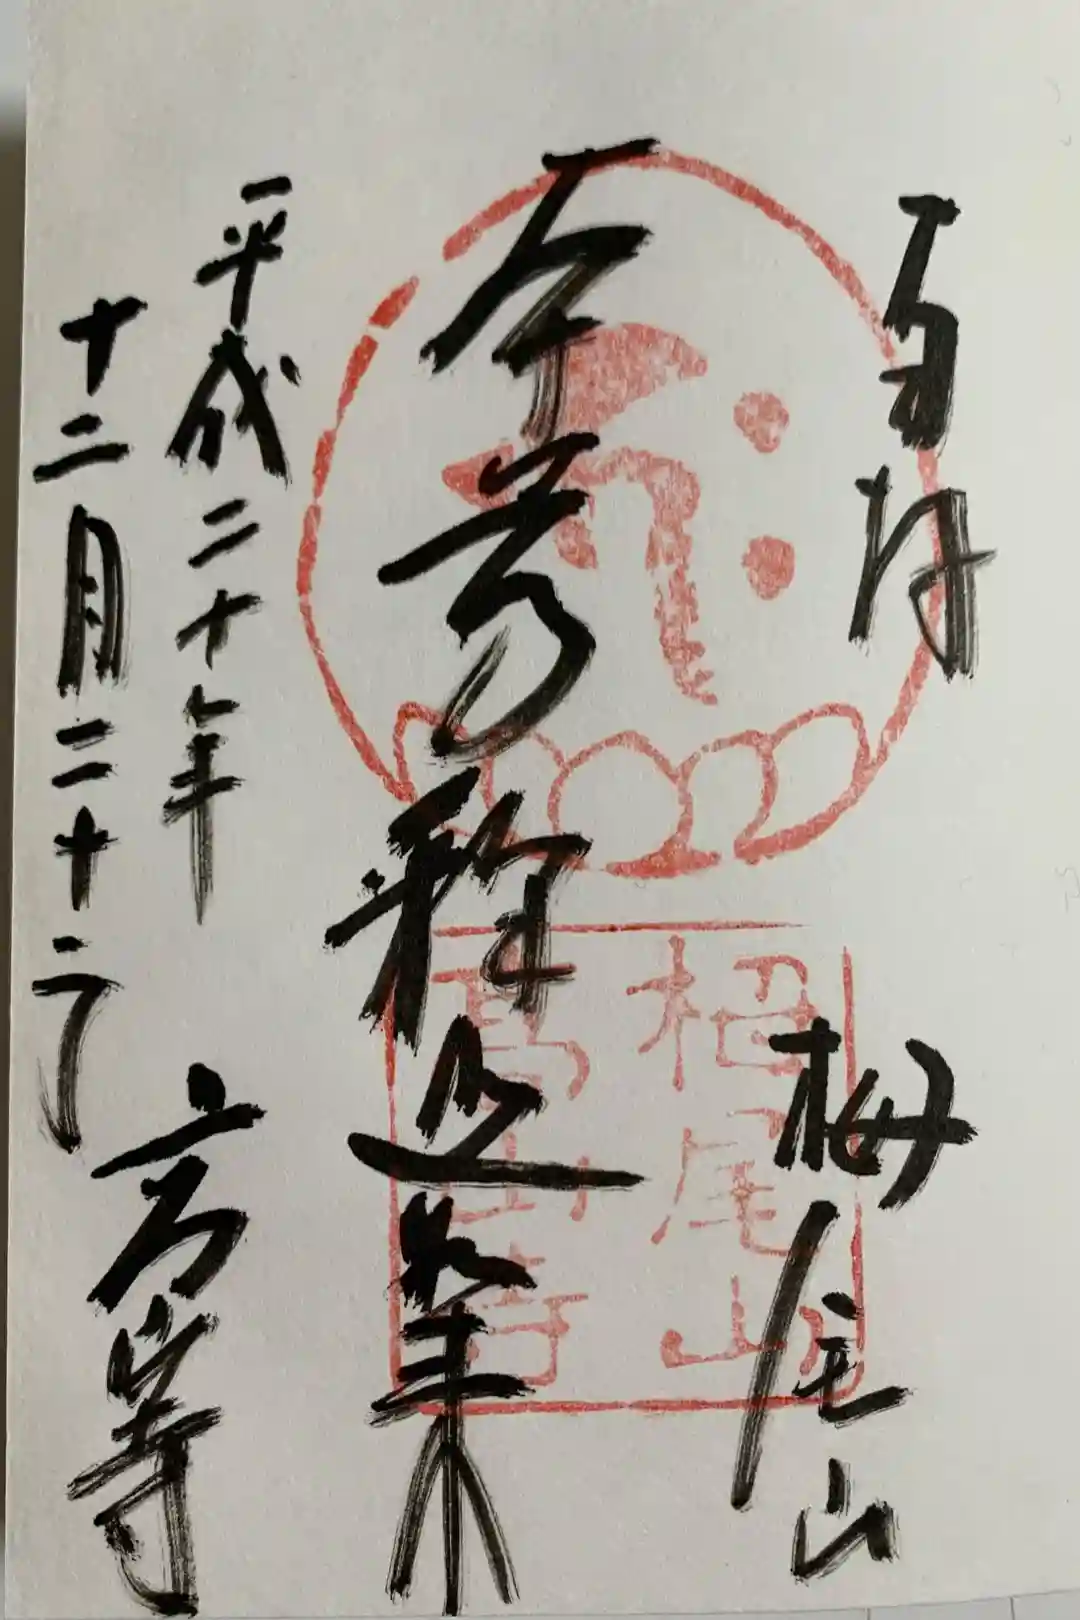 百拝 栂尾山
釈迦如来
平成二十年
十二月二十
高山寺
栂尾山
高山寺